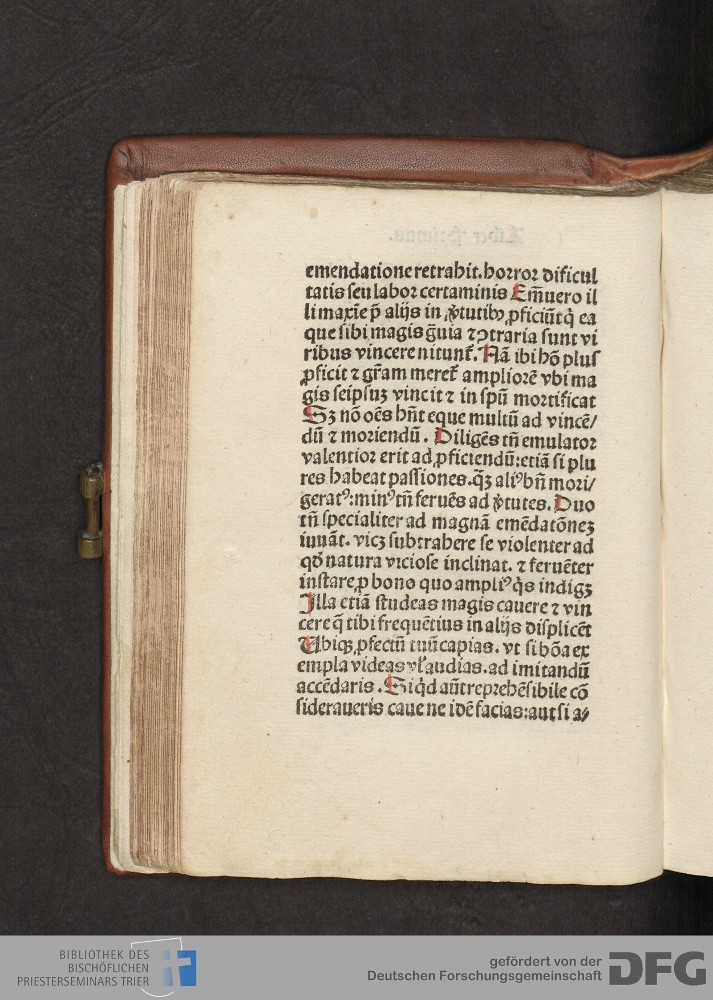 emendatione retrahit. horror dificul
tatis seu labor certaminis Em̄uero il
li maxīe p̄ alijs in v̓tutibꝰ ꝓficiūt q̇ ea
que sibi magis g̃uia ⁊ ꝯtraria sunt vi
ribus vincere nitunt᷑. Nā ibi hō plus
ꝓficit ⁊ gr̄am meret᷑ ampliorē vbi ma
gis seipsuꝫ vincit ⁊ in spū mortificat
Sꝫ nō oēs hn̄t eque multū ad vincē/
dū ⁊ moriendū. Diligēs tn̄ emulator
valentior erit ad ꝓficiendū: etiā si plu
res habeat passiones. q̄ꝫ aliꝰ bn̄ mori/
geratꝰ: minꝰ tn̄ feruēs ad v̓tutes. Duo
tn̄ specialiter ad magnā emēdatōneꝫ
iuuāt. vicꝫ subtrahere se violenter ad
qd̄ natura viciose inclinat. ⁊ feruēter
instare ꝓ bono quo ampliꝰ q̇s indigꝫ
Illa etiā studeas magis cauere ⁊ vin
cere q̄ tibi frequētius in alijs displicēt
Ubiqꝫ ꝓfectū tuū capias. vt si bōa ex
empla videas vl᷑ audias. ad imitandū
accēdaris. Siq̇d aūt reprehēsibile cō
sideraueris caue ne idē facias: aut si a/
BIBLIOTHEK DES
BISCHÖFLICHEN
PRIESTERSEMINARS TRIER
gefördert von der
Deutschen Forschungsgemeinschaft
DFG